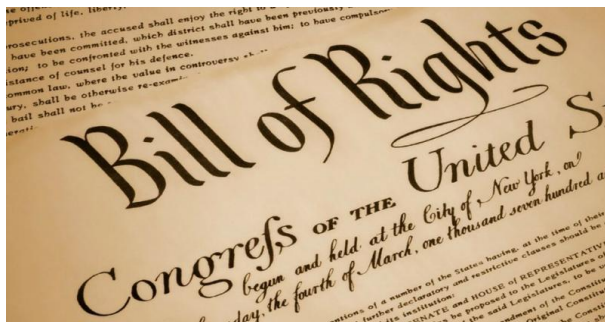 prived of life, liberty,
prosecutions, the accused shall enjoy the right to a
have been committed, which district shall have been previously
ion; to be confronted with the witnesses against him; to have compulsor
stance of counsel for his defence.
ommon law, where the value in controversy shall
ury, shall be otherwise re-exam
bail shall not be
Bill of Rights
Congreſs OF THE United S
begun and held at the City of New York, on
day, the fourth of March, one thousand seven hundred a
ntions of a number of the States having, at the time of their
further declaratory and restrictive clauses should be
its institution:
NATE and HOUSE of REPRESENTATIV
be proposed to the Legislatures of
the said Legislatures, to be
ndment of the Constitu
Original Constitu